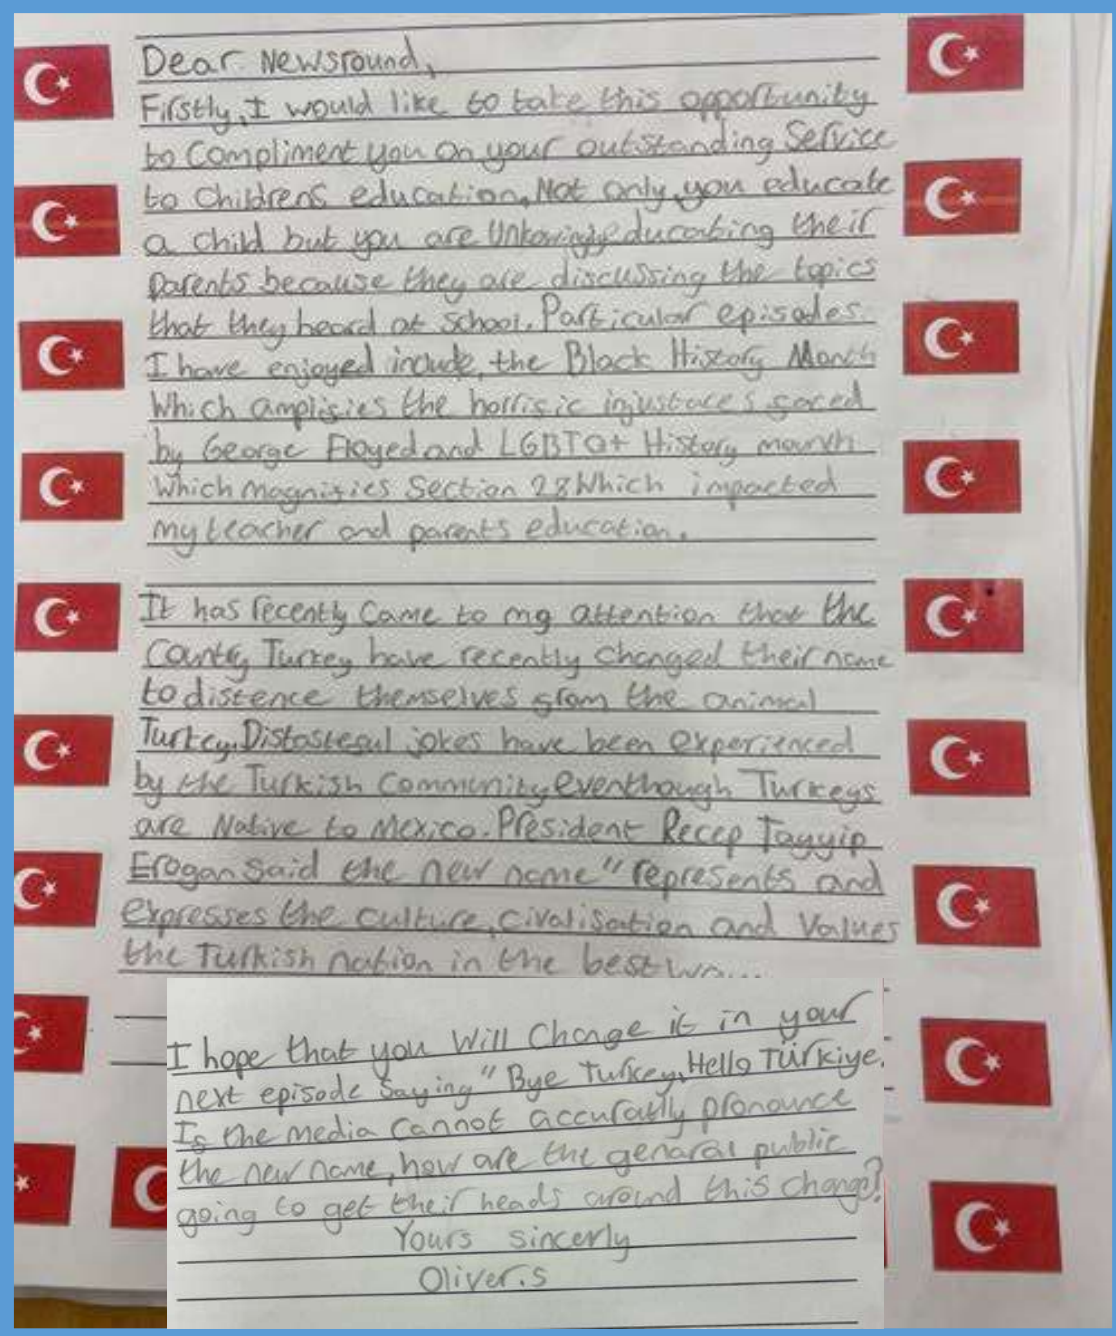 Dear Newsround,
Firstly, I would like to take this opportunity
to compliment you on your outstanding service
to childrens education, Not only, you educate
a child but you are Unkowingly educating their
parents because they are discussing the topics
that they heard at school. Particular episodes
I have enjoyed include, the Black History Month
Which amplifies the horrific injustaces faced
by George Floyed and LGBTQ+ History month
Which magnifies Section 28 Which impacted
my teacher and parents education.
It has recently came to my attention that the
Country Turkey have recently changed their name
to distence themselves from the animal
Turkey. Distasteful jokes have been experienced
by the Turkish Community, eventhough Turkeys
are Native to Mexico. President Recep Tayyip
Erogan said the new name "represents and
expresses the culture, civalisation and values
the Turkish nation in the best
I hope that you Will Change it in your
next episode saying "Bye Turkey, Hello Türkiye.
If the media cannot accuratly pronounce
the new name, how are the genaral public
going to get their heads around this change?
Yours sincerly
Oliver.s